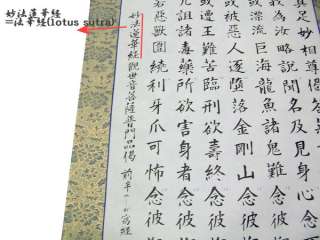 妙法蓮華經
=法華経(lotus sutra)
具足妙相
為汝略說聞名及見身心念
或漂流巨海龍魚諸鬼難念彼
或被惡人逐墮落金剛山念彼
或遭王難苦臨刑欲壽終念彼
咒詛諸毒藥所欲害身者念彼
若惡獸圍繞利牙爪可怖念彼
妙法蓮華經觀世音菩薩普門品偈 前半 寫經